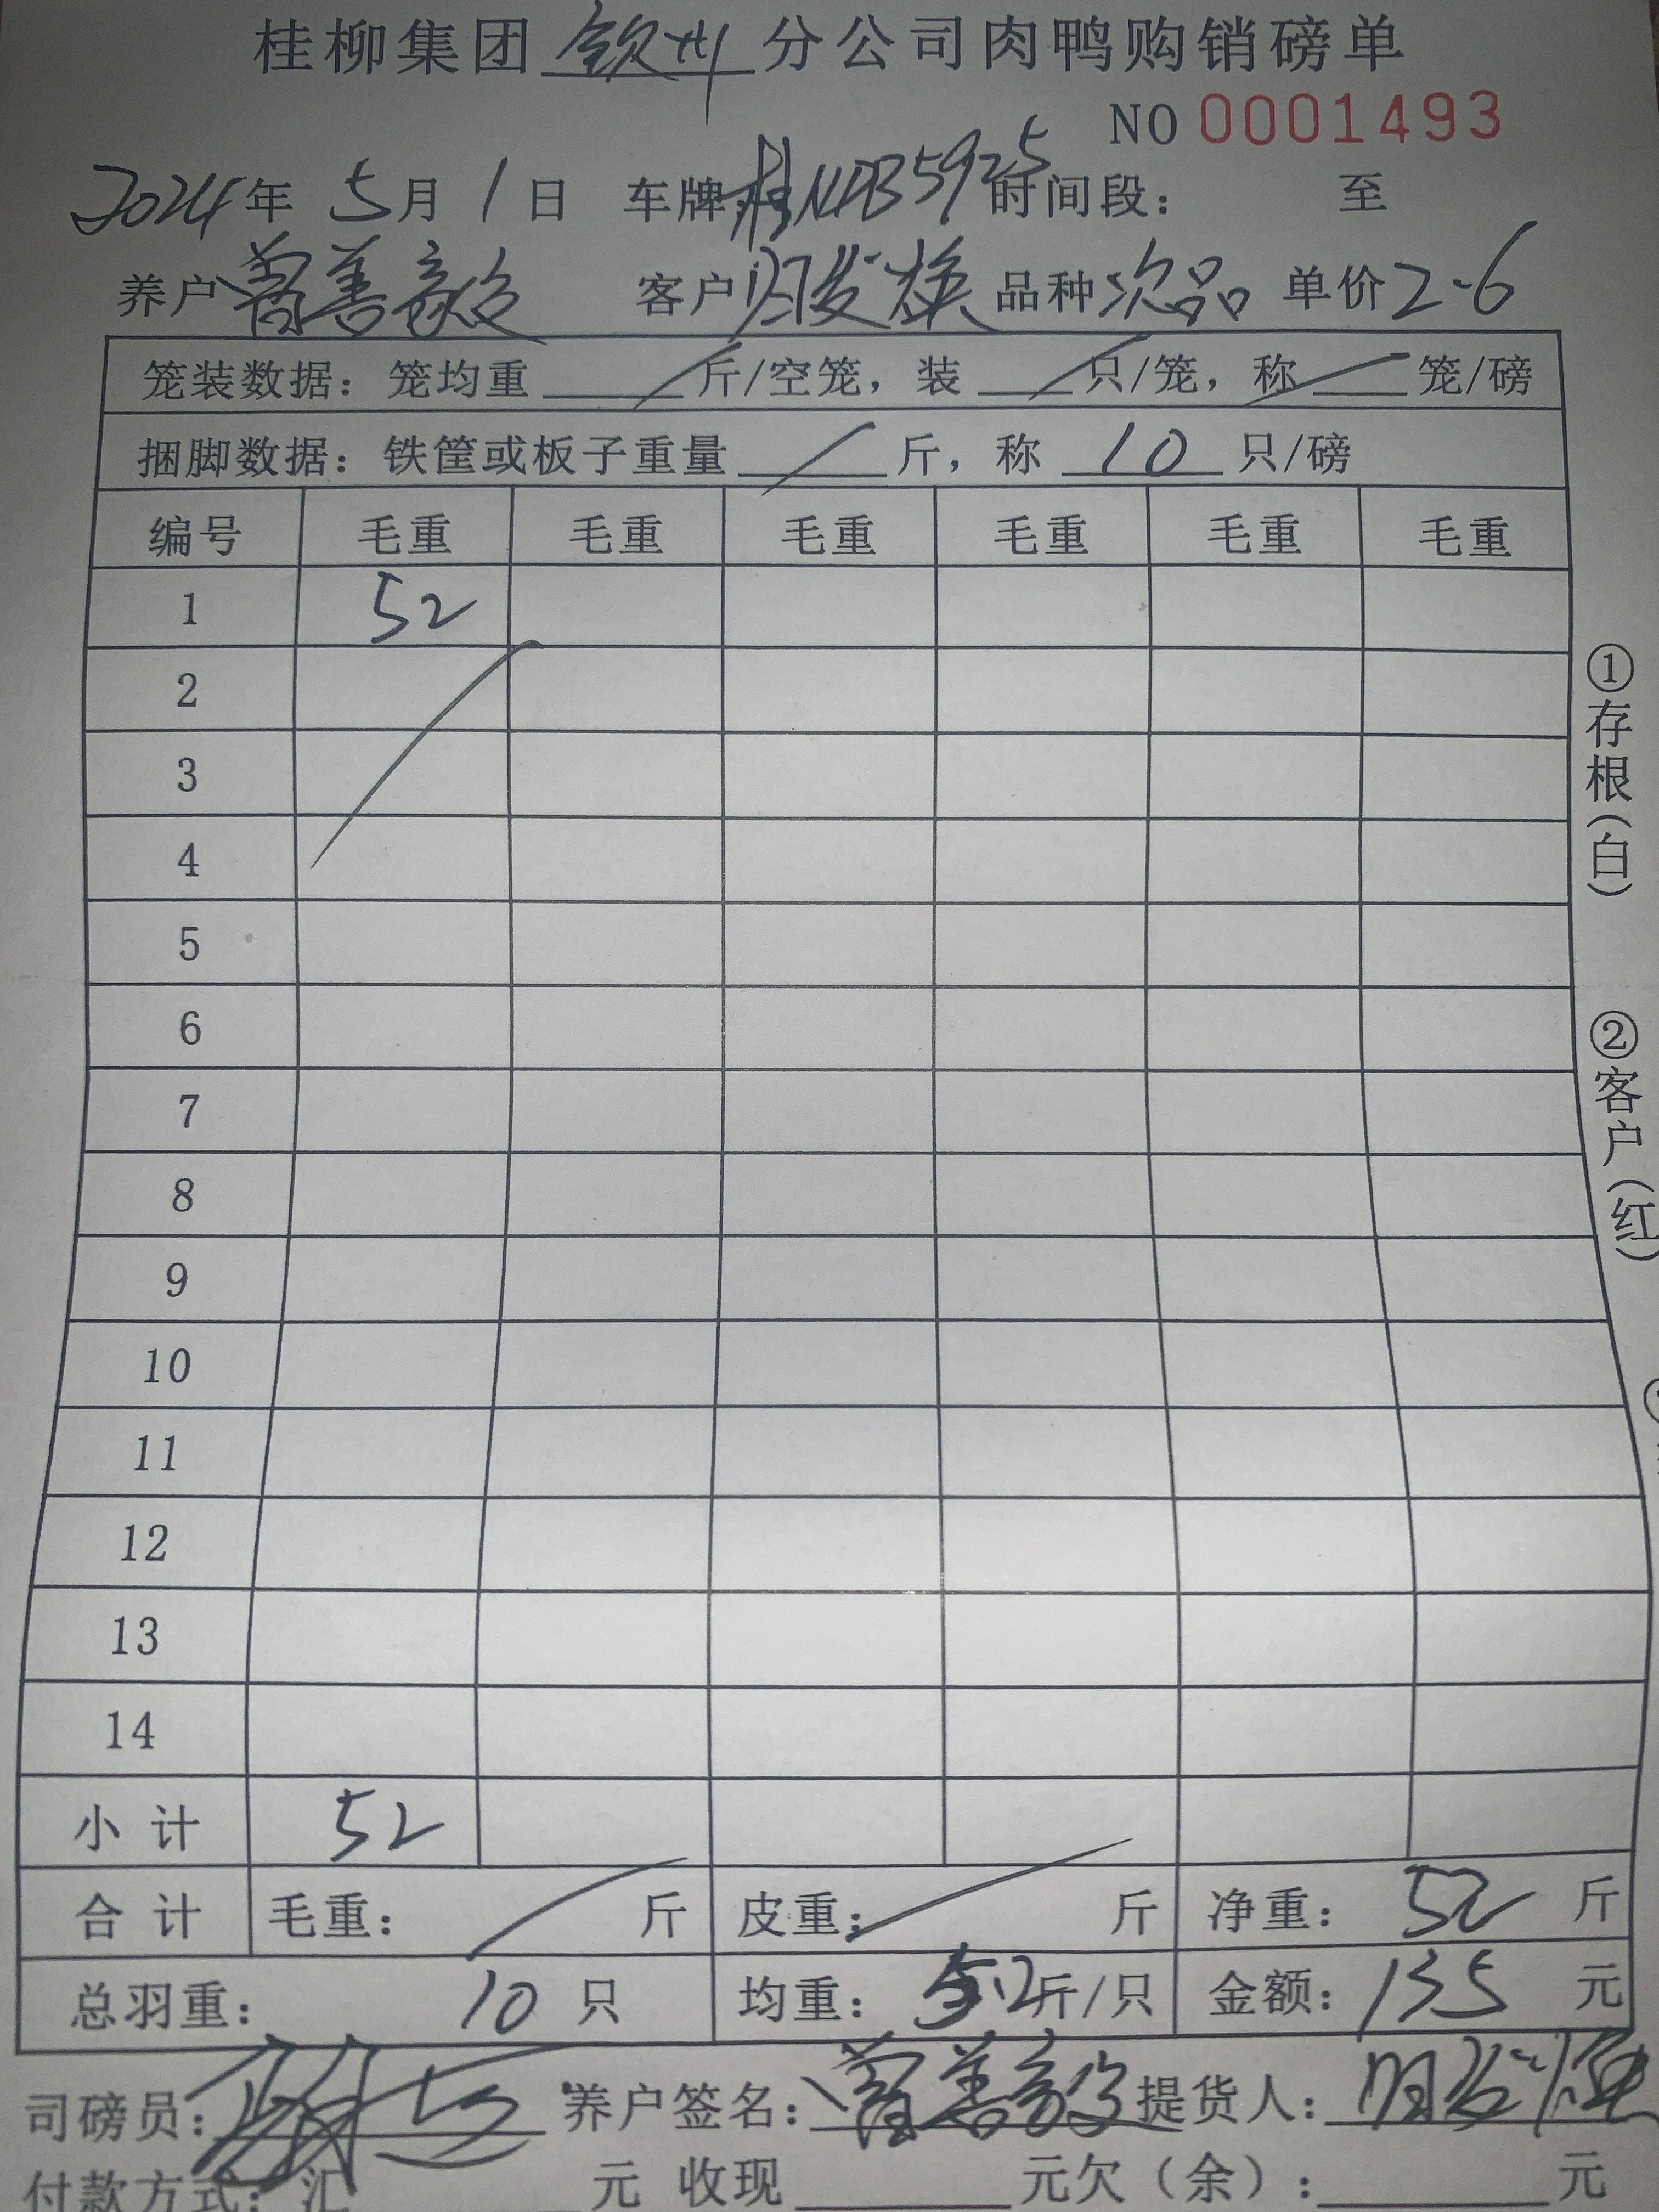 桂柳集团 钦州 分公司肉鸭购销磅单
NO 0001493
2024年 5月 1日 车牌:桂NDB5925 时间段: 至
养户 客户 品种 次品 单价 2.6
笼装数据:笼均重 / 斤/空笼,装 / 只/笼,称 / 笼/磅
捆脚数据:铁筐或板子重量 / 斤,称 10 只/磅
编号 毛重 毛重 毛重 毛重 毛重 毛重
1 52
2
3
4
5
6
7
8
9
10
11
12
13
14
小计 52
合计 毛重: / 斤 皮重: / 斤 净重: 52 斤
总羽重: 10 只 均重: 5.2 斤/只 金额: 135 元
司磅员: 养户签名: 提货人:
付款方式:汇 元 收现 元欠(余): 元
①存根(白)
②客户(红)